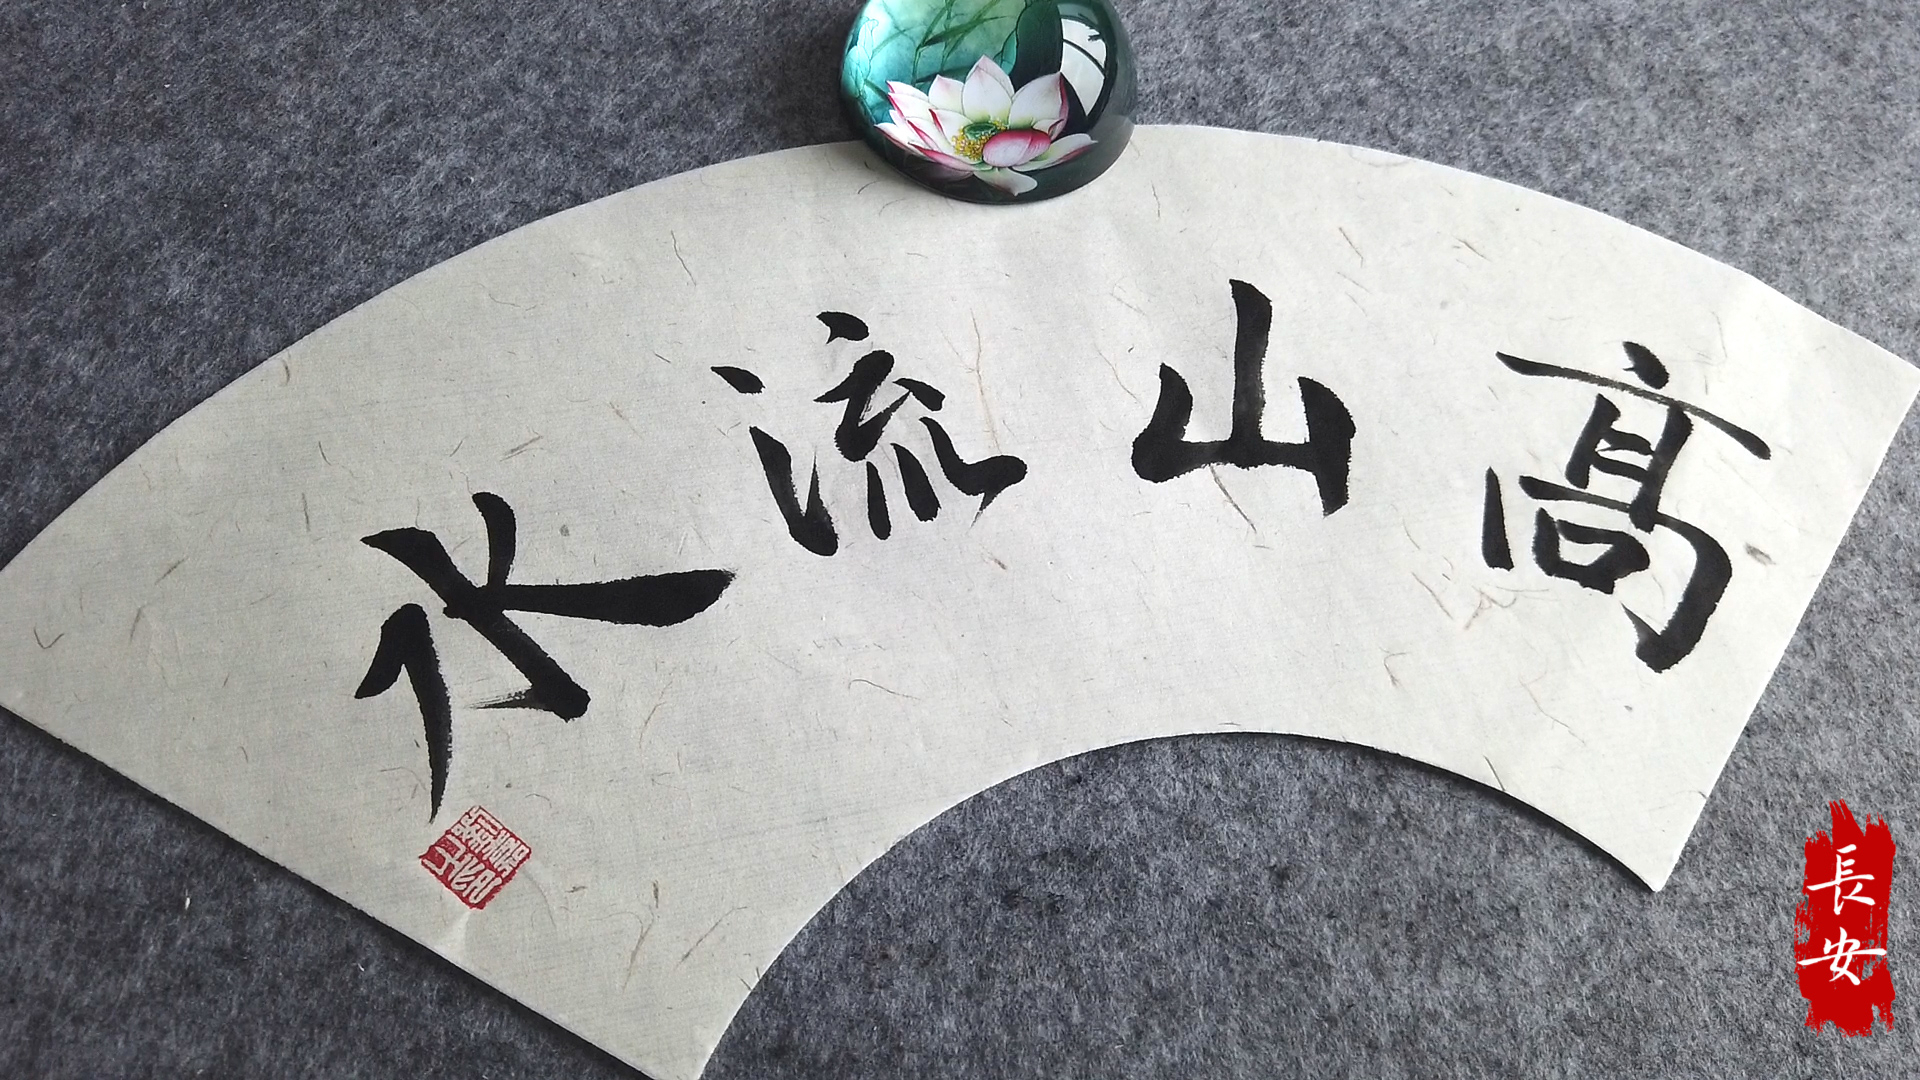 髙山流水
長安